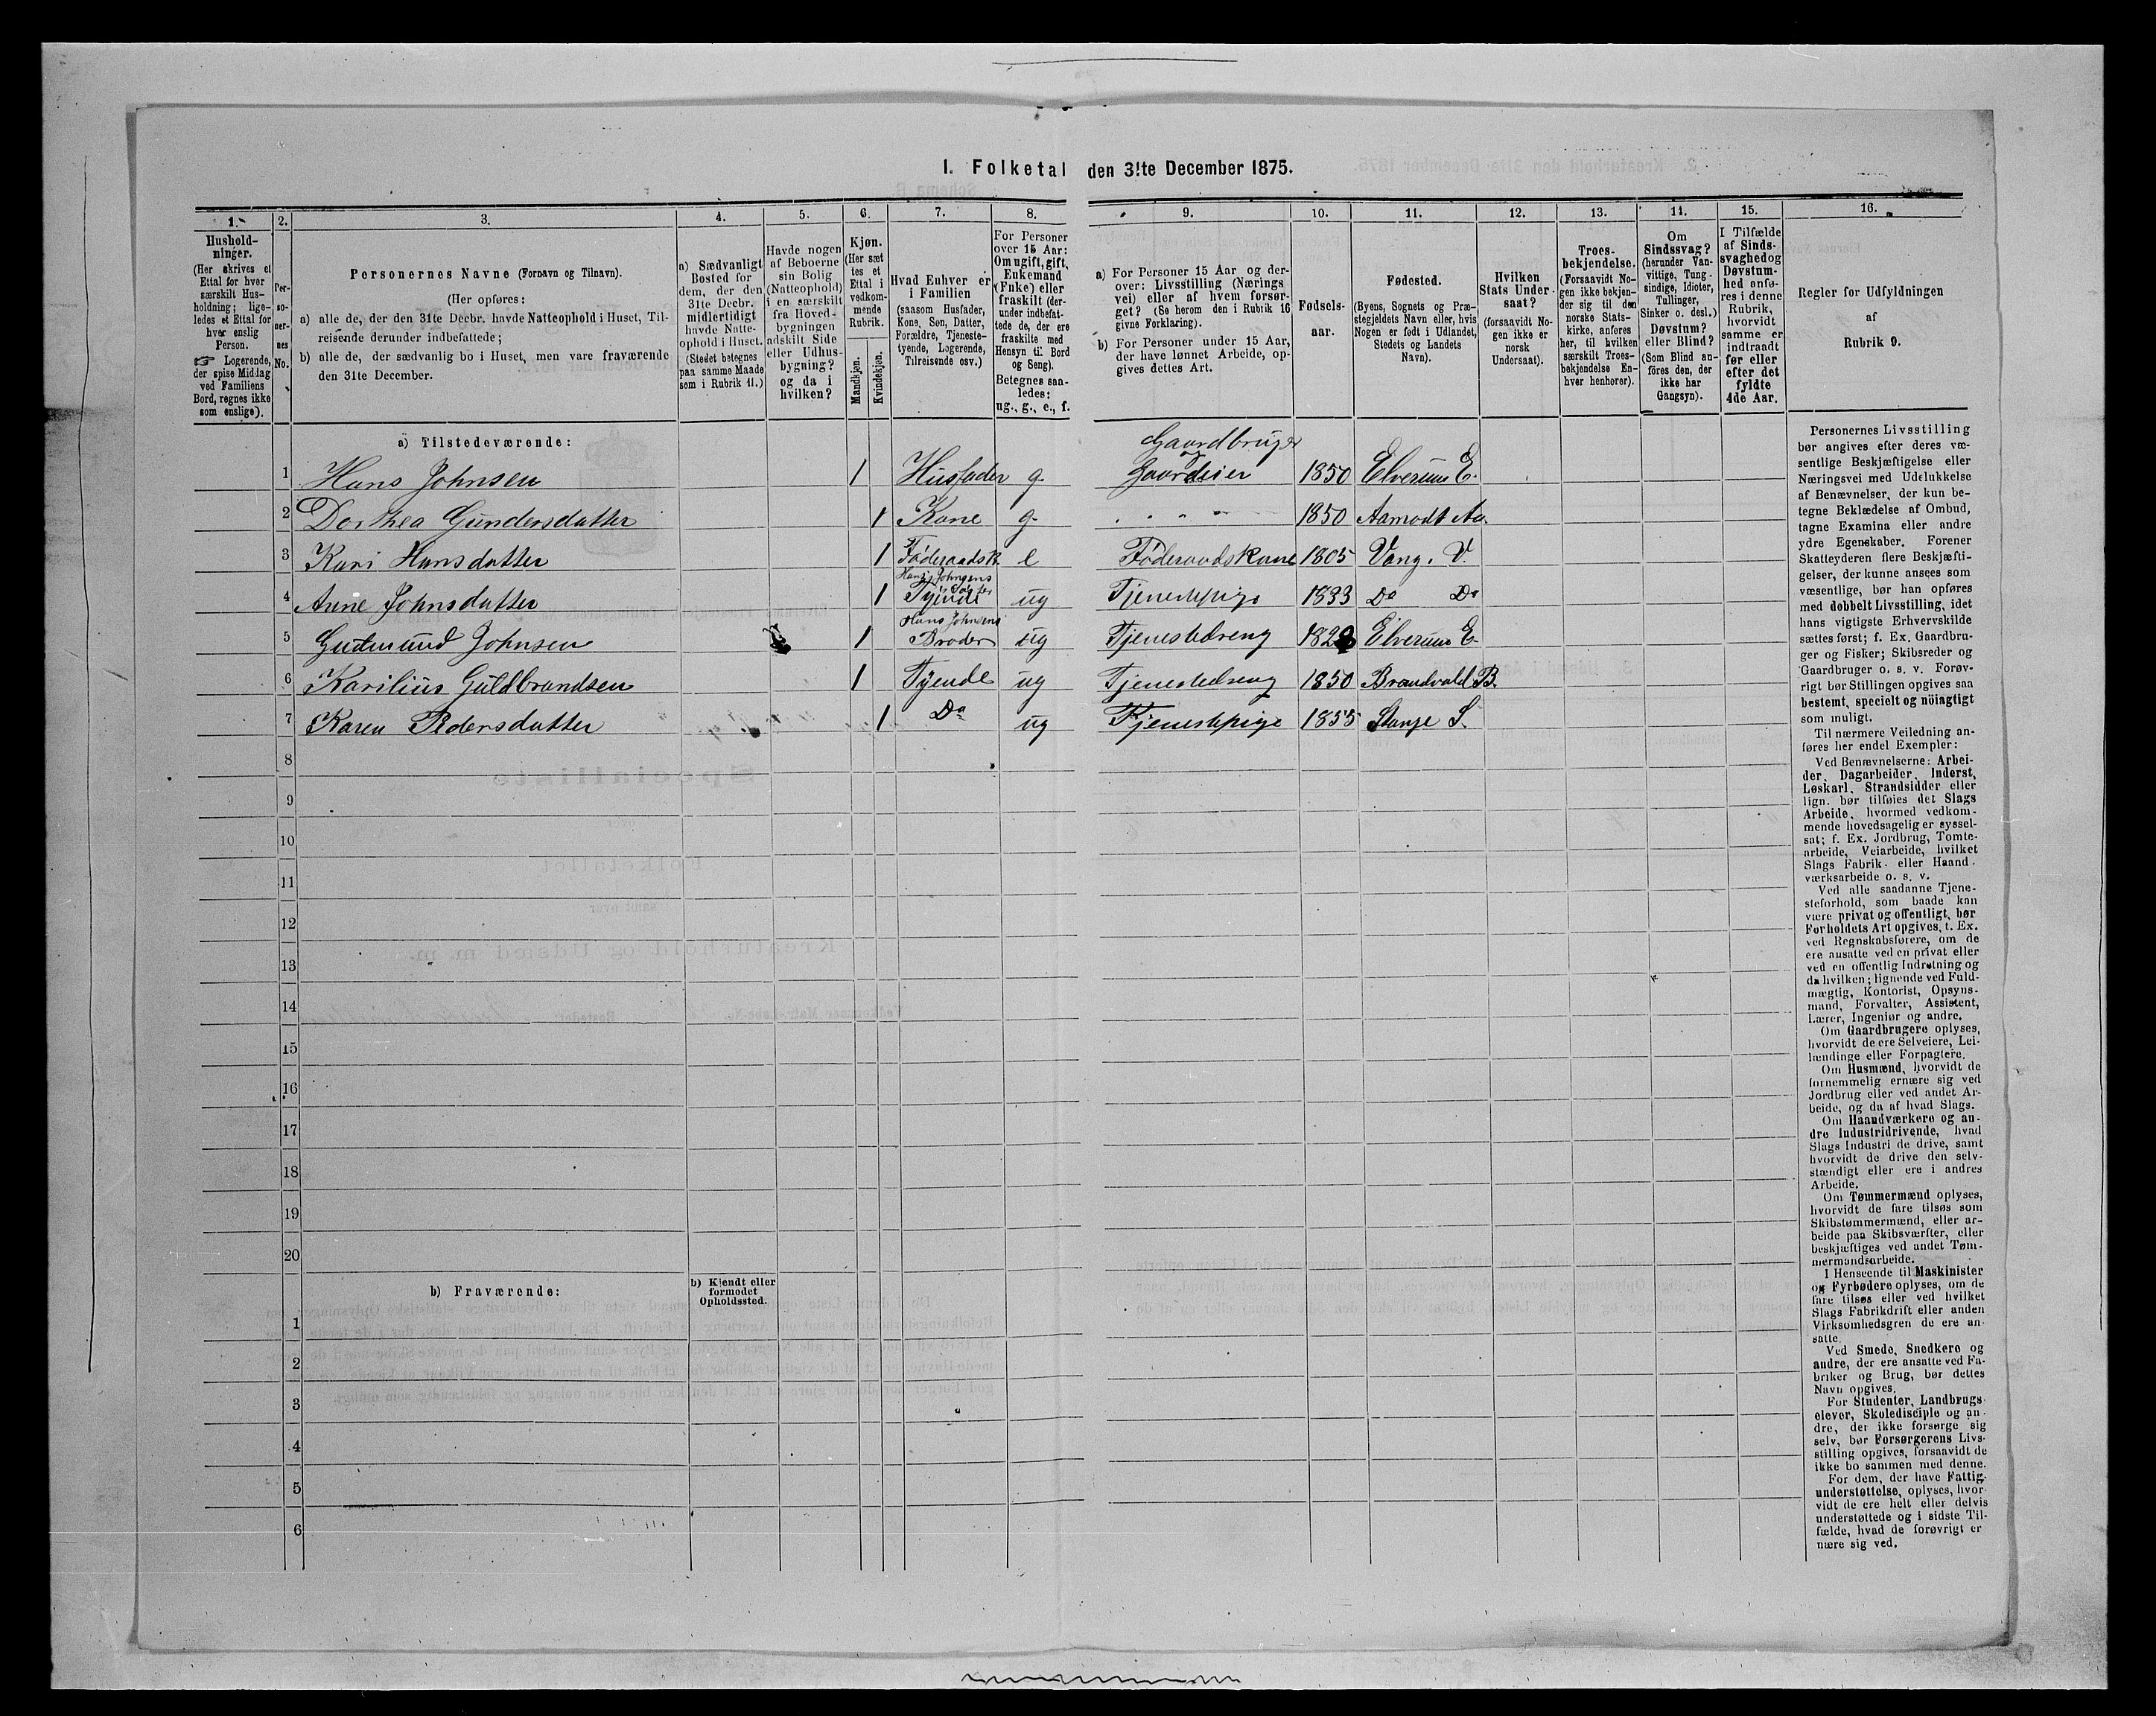 I. Folketal den 31te December 1875.
1. 2. 3. 4. 5. 6. 7. 8. 9. 10. 11. 12. 13. 14. 15. 16.
Hushold-
ninger.
(Her skrives et
Ettal for hver
særskilt Hus-
holdning; lige-
ledes et Ettal for
hver enslig
Person.
☞ Logerende,
der spise Middag
ved Familiens
Bord, regnes ikke
som enslige).
Per-
so-
ner-
nes
No.
Personernes Navne (Fornavn og Tilnavn).
(Her opføres:
a) alle de, der den 31te Decbr. havde Natteophold i Huset, Til-
reisende derunder indbefattede;
b) alle de, der sædvanlig bo i Huset, men vare fraværende
den 31te December.
a) Sædvanligt
Bosted for
dem, der den
31te Decbr.
midlertidigt
havde Natte-
ophold i Huset.
(Stedet betegnes
paa samme Maade
som i Rubrik 11.)
Havde nogen
af Beboerne
sin Bolig
(Natteophold)
i en særskilt
fra Hoved-
bygningen
adskilt Side
eller Udhus-
bygning?
og da i
hvilken?
Kjøn.
(Her sæt
tes et
Ettal i
vedkom-
mende
Rubrik.
Mandkjøn.
Kvindekjøn.
Hvad Enhver er
i Familien
(saasom Husfader,
Kone, Søn, Datter,
Forældre, Tjeneste-
tyende, Logerende,
Tilreisende osv.)
For Personer
over 15 Aar:
Om ugift, gift,
Enkemand
(Enke) eller
fraskilt (der-
under indbefat-
tede de, der ere
fraskilte med
Hensyn til Bord
og Seng).
Betegnes saa-
ledes:
ug., g., e., f.
a) For Personer 15 Aar og der-
over: Livsstilling (Nærings
vei) eller af hvem forsør-
get? (Se herom den i Rubrik 16
givne Forklaring).
b) For Personer under 15 Aar,
der have lønnet Arbeide, op-
gives dettes Art.
Fødsels-
aar.
Fødested.
(Byens, Sognets og Præ-
stegjeldets Navn eller, hvis
Nogen er født i Udlandet,
Stedets og Landets
Navn).
Hvilken
Stats Under-
saat?
(forsaavidt No-
gen ikke er
norsk
Undersaat).
Troes-
bekjendelse.
(Forsaavidt No-
gen ikke bekjen-
der sig til den
norske Stats-
kirke, anføres
her, til hvilken
særskilt Troes-
bekjendelse En-
hver henhører).
Om
Sindssvag?
(herunder Van-
vittige, Tung-
sindige, Idioter,
Tullinger,
Sinker o. desl.)
Døvstum?
eller Blind?
(Som Blind an-
føres den, der
ikke har
Gangsyn).
I Tilfælde
af Sinds-
svaghed og
Døvstum-
hed anfø-
res i denne
Rubrik,
hvorvidt
samme er
indtraadt
før eller
efter det
fyldte
4de Aar.
Regler for Udfyldningen
af
Rubrik 9.
a) Tilstedeværende:
1 Hans Johnsen 1 Husfader g. Gaardbruger og Gaardeier 1850 Elverum E.
2 Dorthea Gundersdatter 1 Kone g. " " " 1850 Aamodt Aa.
3 Kari Hansdatter 1 Føderaadsk. e Føderaadskone 1805 Vang. V.
4 Anne Johnsdatter 1 Hans Johnsens Tyende ug Tjenestepige 1833 Do Do
5 Gudmund Johnsen 1 Hans Johnsens Broder ug Tjenestedreng 1828 Elverum E
6 Karilius Guldbrandsen 1 Tyende ug Tjenestedreng 1850 Brandvold B.
7 Karen Pedersdatter 1 Do ug Tjenestepige 1855 Stange S.
8
9
10
11
12
13
14
15
16
17
18
19
20
b) Fraværende:
b) Kjendt eller
formodet
Opholdssted.
1
2
3
4
5
6
Personernes Livsstilling
bør angives efter deres væ-
sentlige Beskjæftigelse eller
Næringsvei med Udelukkelse
af Benævnelser, der kun be-
tegne Beklædelse af Ombud,
tagne Examina eller andre
ydre Egenskaber. Forener
Skatteyderen flere Beskjæfti-
gelser, der kunne ansees som
væsentlige, bør han opføres
med dobbelt Livsstilling, idet
hans vigtigste Erhvervskilde
sættes først; f. Ex. Gaardbru-
ger og Fisker; Skibsreder og
Gaardbruger o. s. v. Forøv-
rigt bør Stillingen opgives saa
bestemt, specielt og nøiagtigt
som muligt.
Til nærmere Veiledning an-
føres her endel Exempler:
Ved Benævnelserne: Arbei-
der, Dagarbeider, Inderst,
Løskarl, Strandsidder eller
lign. bør tilføies det Slags
Arbeide, hvormed vedkom-
mende hovedsagelig er syssel-
sat; f. Ex. Jordbrug, Tomte-
arbeide, Veiarbeide, hvilket
Slags Fabrik- eller Haand-
værksarbeide o. s. v.
Ved alle saadanne Tjene-
steforhold, som baade kan
være privat og offentligt, bør
Forholdets Art opgives, t. Ex.
ved Regnskabsførere, om de
ere ansatte ved en privat eller
ved en offentlig Indretning og
da hvilken; lignende ved Fuld-
mægtig, Kontorist, Opsyns-
mand, Forvalter, Assistent,
Lærer, Ingeniør og andre.
Om Gaardbrugere oplyses,
hvorvidt de ere Selveiere, Lei-
lændinge eller Forpagtere.
Om Husmænd, hvorvidt de
fornemmelig ernære sig ved
Jordbrug eller ved andet Ar-
beide, og da af hvad Slags.
Om Haandværkere og an-
dre Industridrivende, hvad
Slags Industri de drive, samt
hvorvidt de drive den selv-
stændigt eller ere i andres
Arbeide.
Om Tømmermænd oplyses,
hvorvidt de fare tilsøs som
Skibstømmermænd, eller ar-
beide paa Skibsværfter, eller
beskjæftiges ved andet Tøm-
mermandsarbeide.
I Henseende til Maskinister
og Fyrbødere oplyses, om de
fare tilsøs eller ved hvilket
Slags Fabrikdrift eller anden
Virksomhedsgren de ere an-
satte.
Ved Smede, Snedkere og
andre, der ere ansatte ved Fa-
briker og Brug, bør dettes
Navn opgives.
For Studenter, Landbrugs-
elever, Skoledisciple og an-
dre, der ikke forsørge sig
selv, bør Forsørgerens Livs-
stilling opgives, forsaavidt de
ikke bo sammen med denne.
For dem, der have Fattig-
understøttelse, oplyses, hvor-
vidt de ere helt eller delvis
understøttede og i sidste Til-
fælde, hvad de forøvrigt er
nære sig ved.